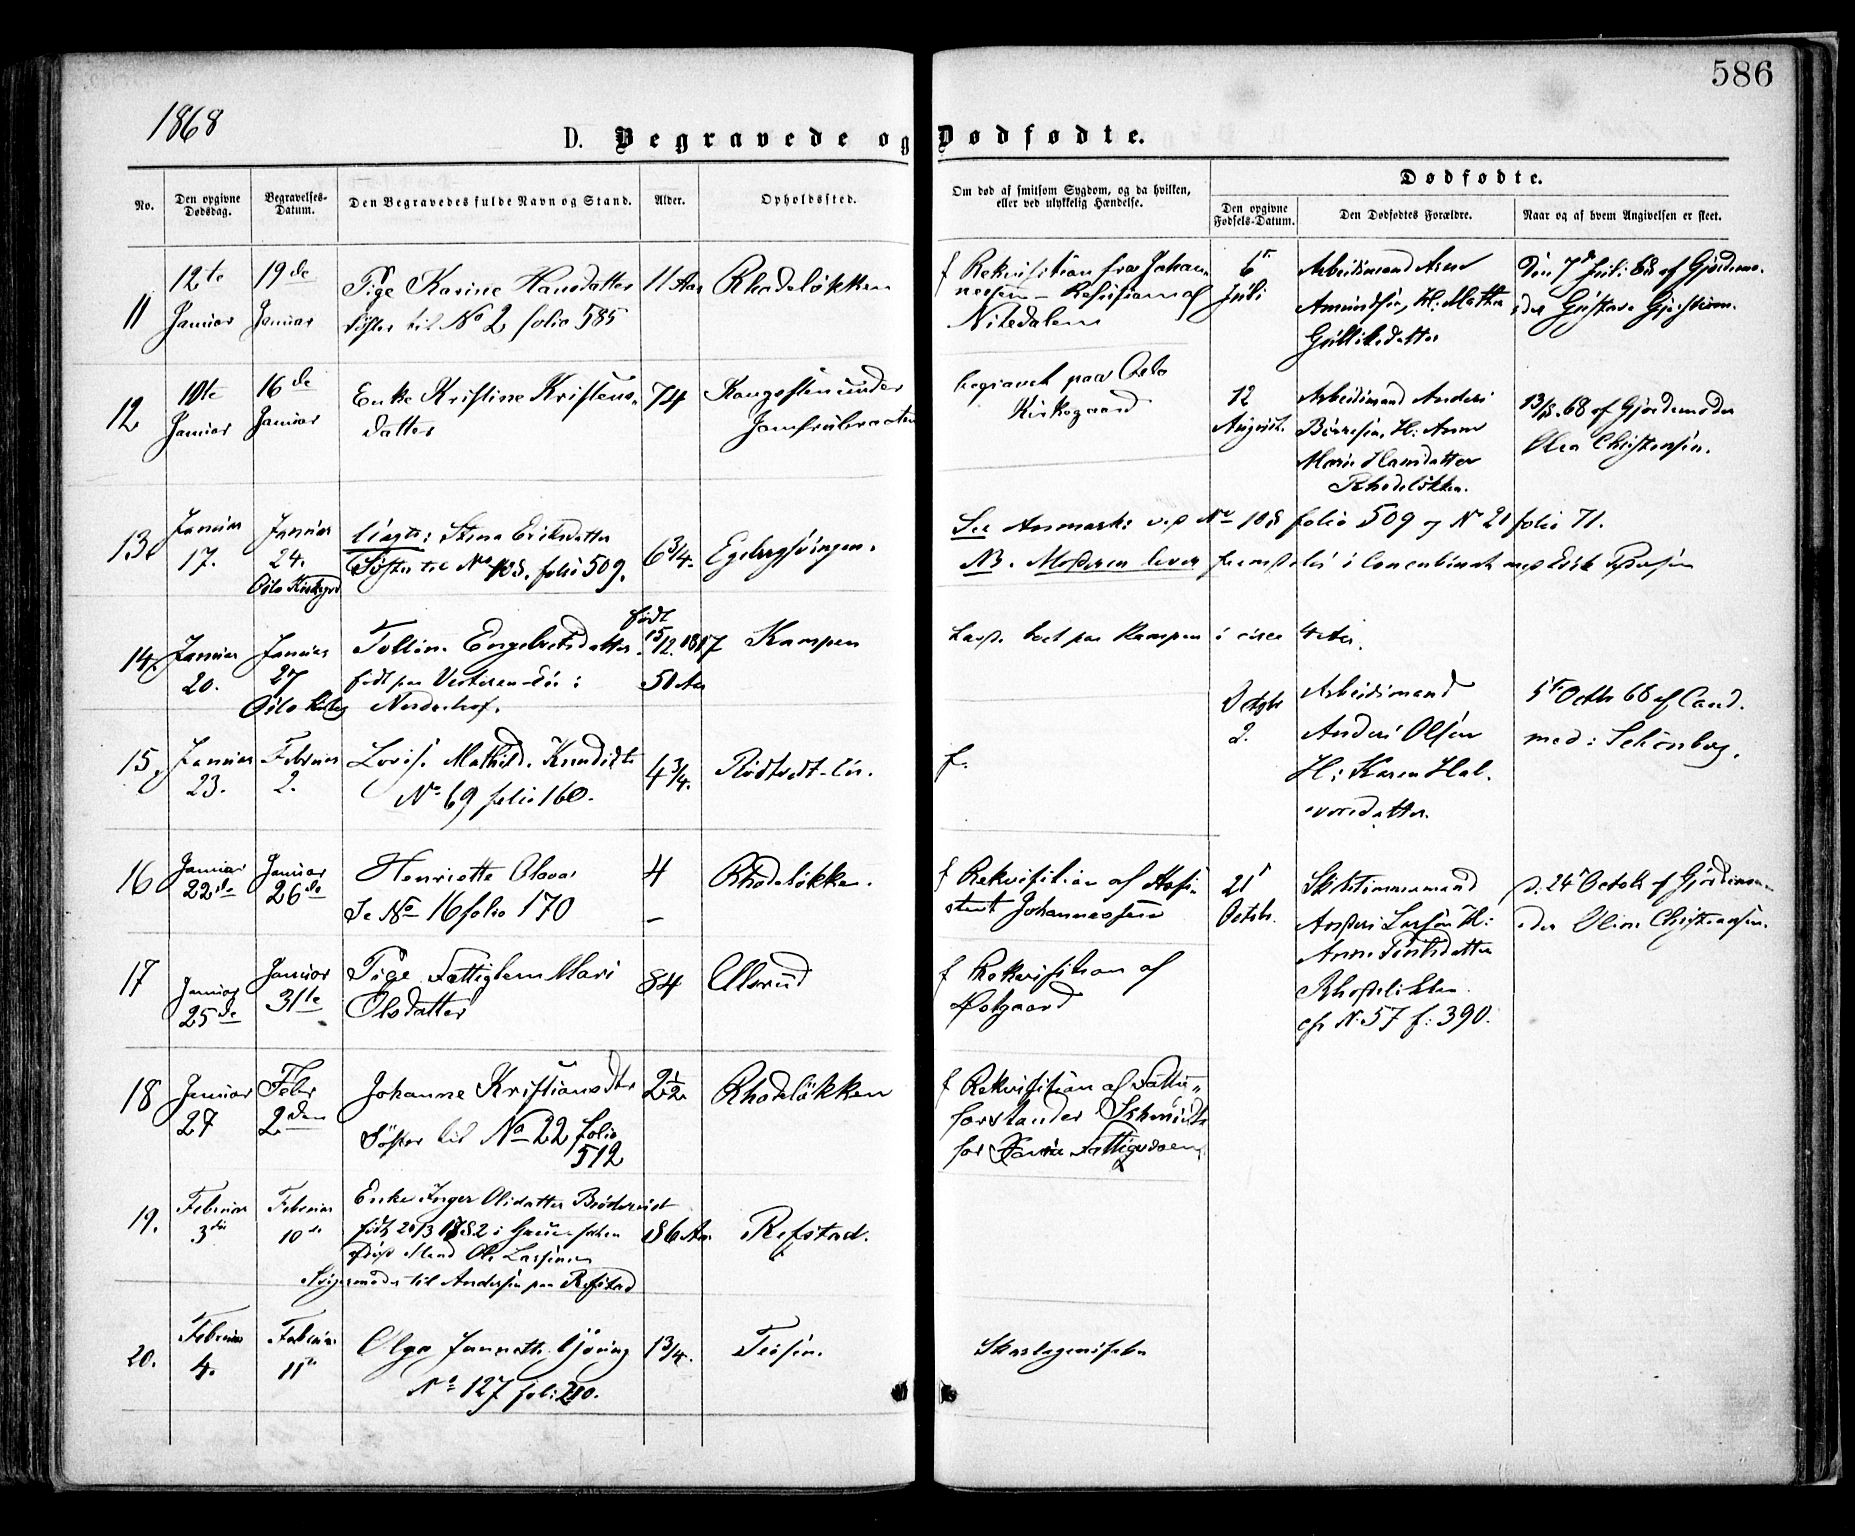 586
1868
D. Begravede og Dødfødte.
No.
Den opgivne Dødsdag.
Begravelses-Datum.
Den Begravedes fulde Navn og Stand.
Alder.
Opholdssted.
Om død af smitsom Sygdom, og da hvilken, eller ved ulykkelig Hændelse.
Dødfødte.
Den opgivne Fødsels-Datum.
Den Dødfødtes Forældre.
Naar og af hvem Angivelsen er skeet.
11
12te Januar
19de Januar
Pige Karine Hansdatter
Søster til No 2 folio 585
11 Aar
Rhodeløkken
f Rekvisition fra Johan-
nessen -
Nitedalen
6 Juli
Arbeidsmand
Amundsen, H: Mathea
Den 7de Juli 68 af Gjordemo-
der Gustava
12
10te Januar
16de Januar
Enke Kristine Kristens-
datter
74
Kongsstien under
Jomfrubraaten
begravet paa Oslo
Kirkegaard
12 August.
Arbeidsmand Anders
H: Anne
Marie Hansdatter
Rhodeløkken.
13/8 68 af Gjordemoder
Olea Christensen.
13
Januar 17.
Januar 24. Oslo Kirkegrd
uægte: Stina Eriksdatter
Søster til No 108. folio 509.
6 3/4.
Egebergsvingen.
See Anmærk: ved No 108 folio 509 og N 21 folio 71.
NB. Moderen lever fremdeles i Concubinat med Erik
14
Januar 20.
Januar 27 Oslo
Engebretsdatter
født paa
født 15/12 1817
50 Aar
Kampen
boet paa Kampen i circa
15,
Januar 23.
Februar 2.
Lovise Mathilde Knudsdtr
No 69 folio 160.
4 3/4.
Rødtvedt-eie.
f.
Octbr 2.
Arbeidsmand
Anders Olsen
H: Karen Hal-
vorsdatter.
5te Octbr 68 af Cand.
med: Schønberg.
16
Januar 22de
Januar 26de
Henriette Olava
Se No 16 folio 170
4
Rhodeløkken.
f Rekvisition af Assi-
stent Johannessen
21 Octobr.
Anders Larsen H:
Anne
Rhodeløkken
cfr N: 57 f: 390.
d. 24 Octobr af Gjordemo-
der Oline Christiansen.
17
Januar 25de
Januar 31te
Pige Fattiglem Mari
Olsdatter
84
Ulsrud
f Rekvisition af
Østgaard
18
Januar 27
Febr 2den
Johanne Kristiansdtr
Søster til No 22 folio
512
2 1/2
Rhodeløkken
f Rekvisition af Fattig-
forstander Schmidt
for Fattigvæsen
19.
Februar 3die
Februar 10de
Enke Inger Olsdatter
Mand Ole Larsen
Svigermoder til Andersen paa Refstad
86 Aar
Refstad.
20.
Februar 4.
Februar 11te
Olga Jannette
No 127 fol: 210.
1 3/4.
Teisen.
Skarlagensfeber